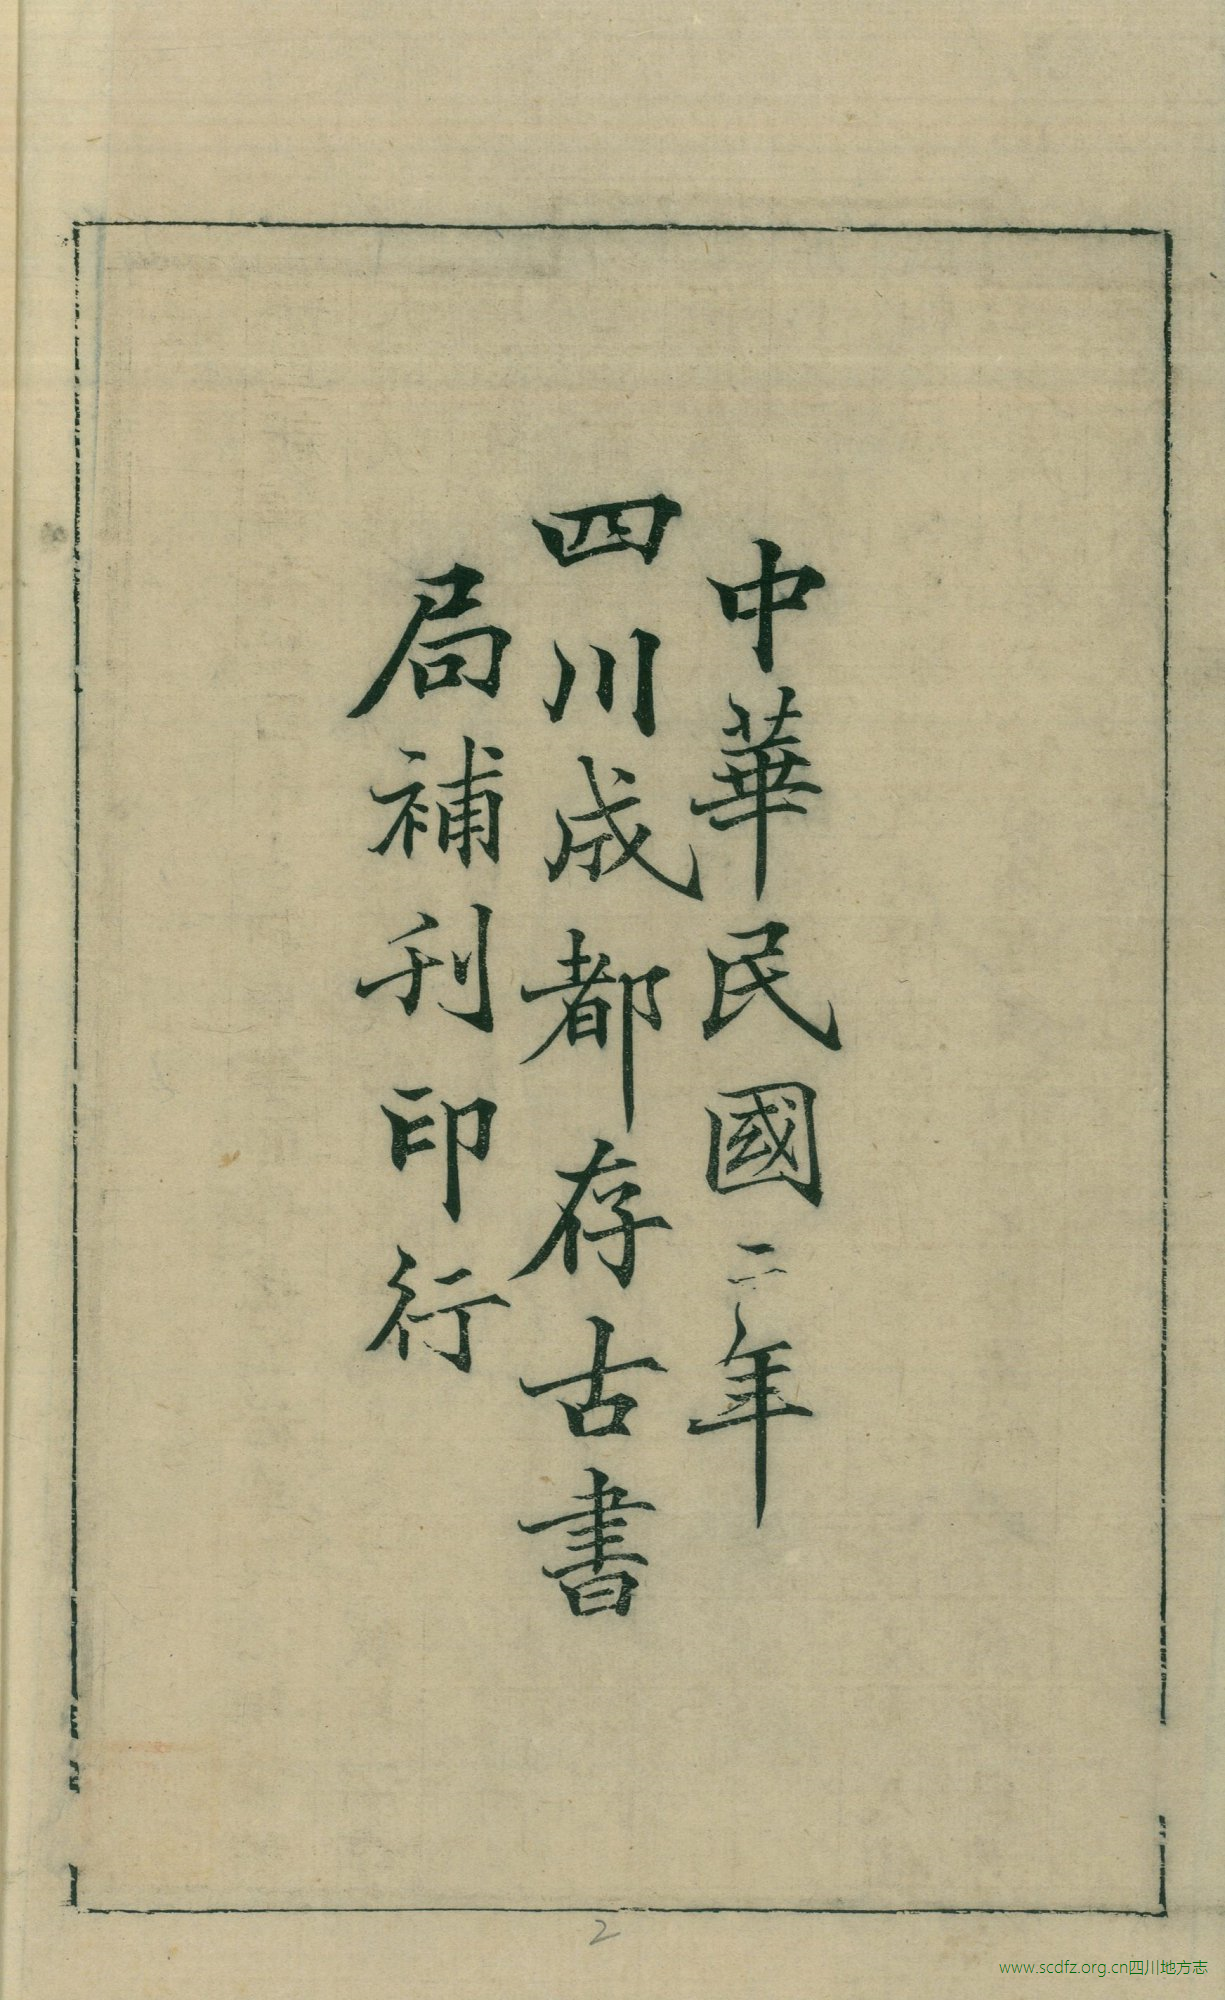 中華民國二年
四川成都存古書
局補刊印行
2
www.scdfz.org.cn四川地方志